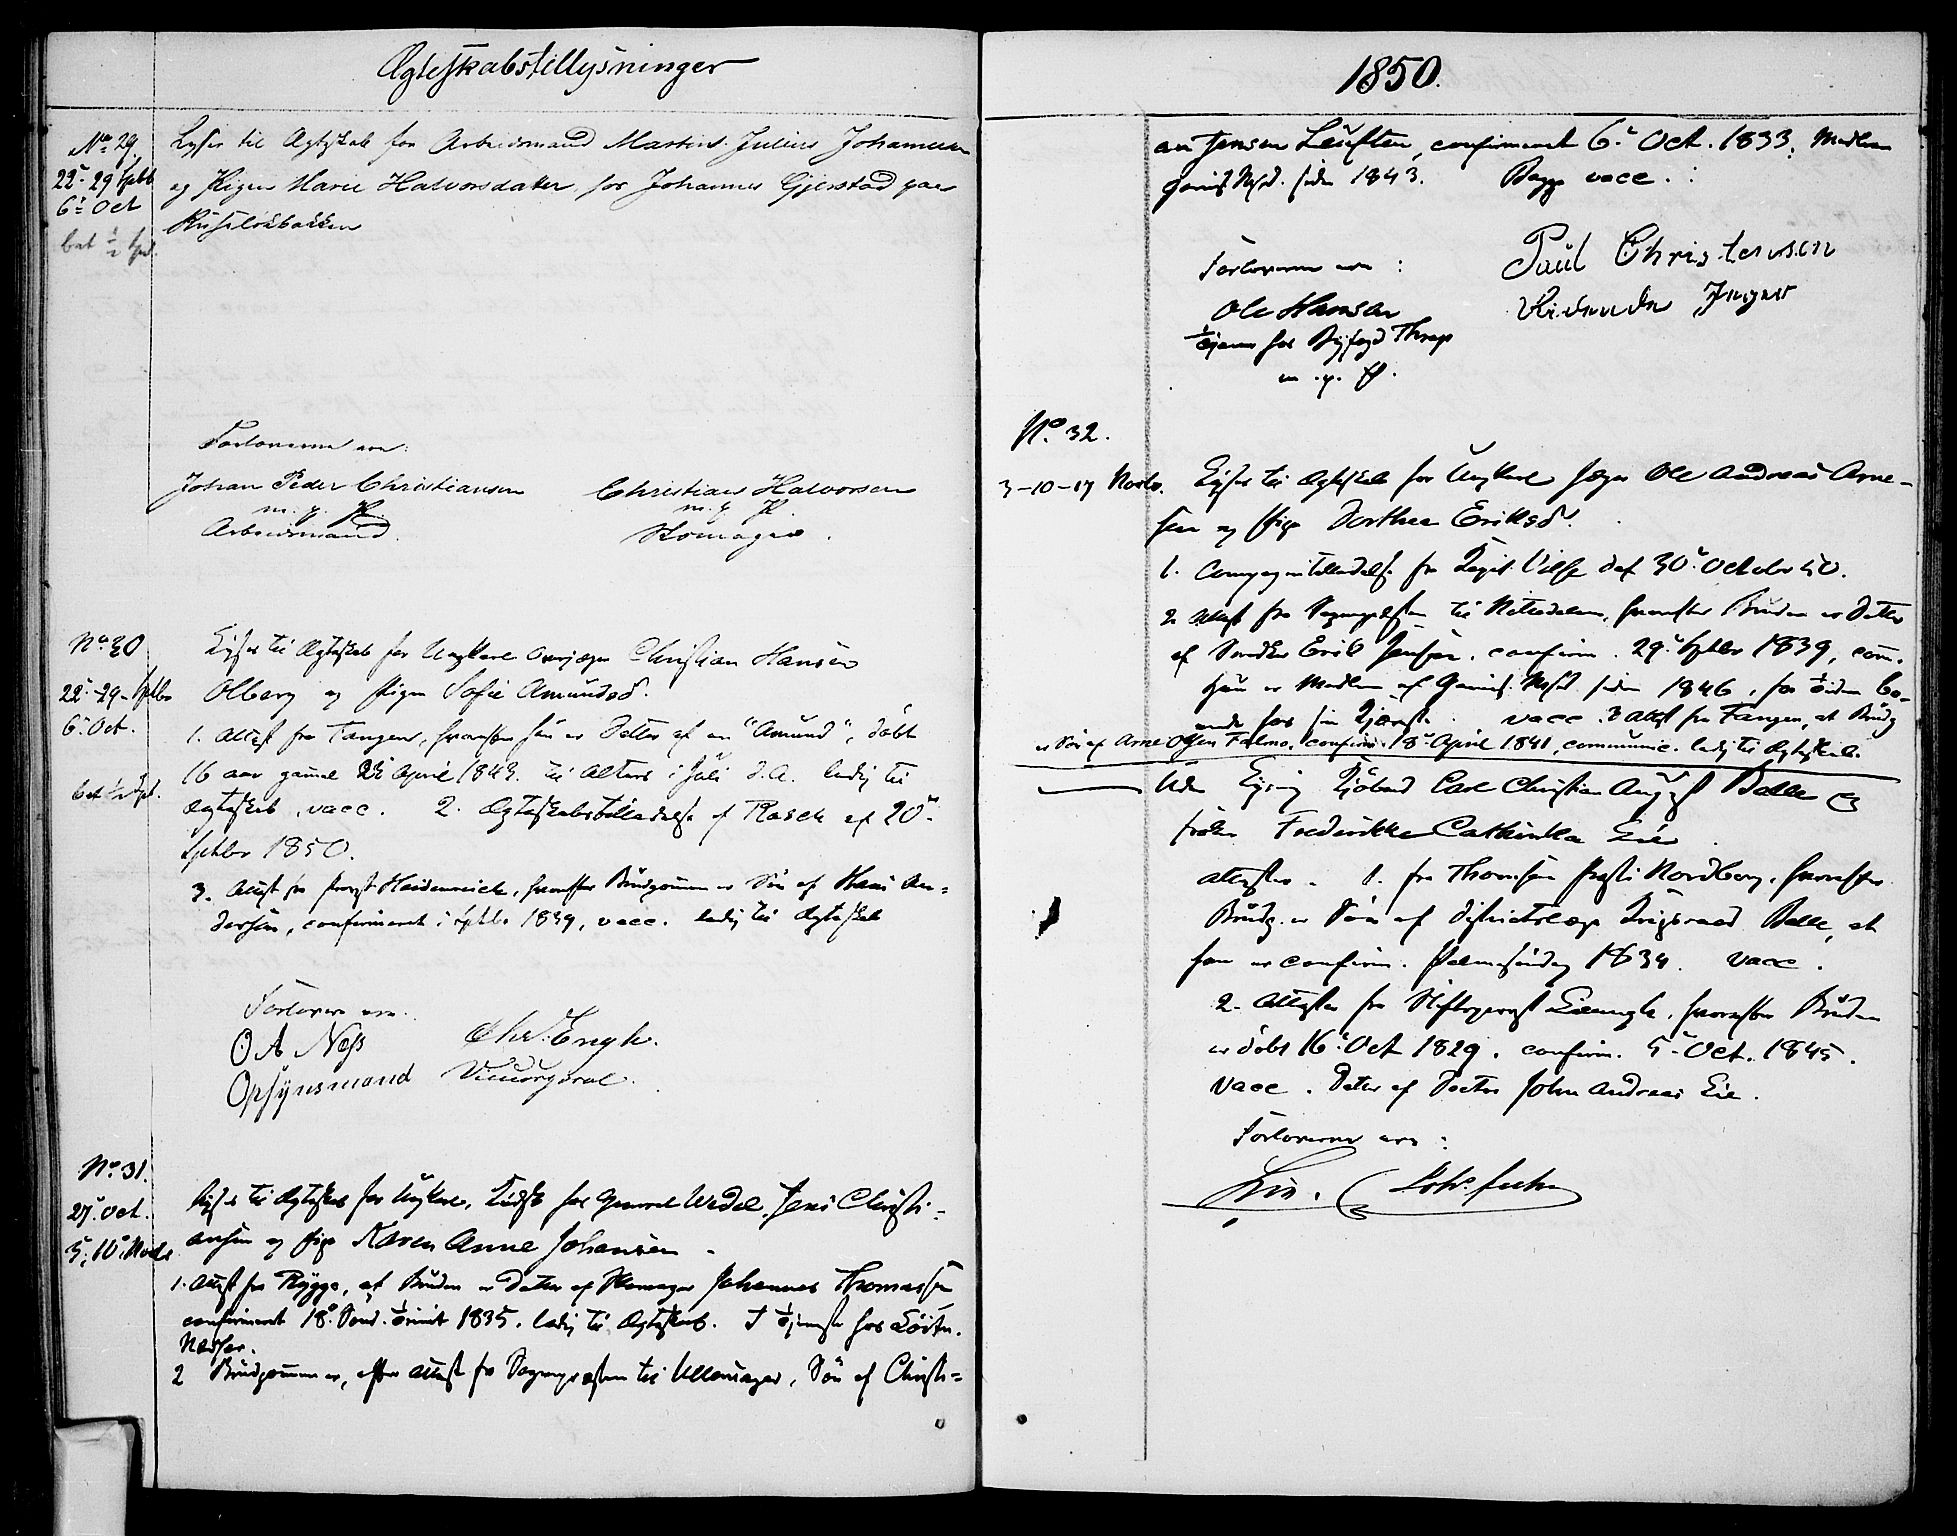 Ægteskabstillysninger
No 29.
22-29 Sptb
6 Oct
bet ½ Spd.
Lyses til Ægteskab for Arbeidsmand Martin Julius Johannesen
og Pigen Marie Halvorsdatter, for Johannes Gjerstad paa
Ruseløkbakken
Forloverne ere:
Johan Peder Christiansen
m. p. P.
Arbeidsmand.
Christian Halvorsen
m. p. P.
Skomager.
No 30
22-29 Sptbr
6 Oct.
bet ½ Spd.
Lyses til Ægteskab for Ungkarl Overjæger Christian Hansen
Olberg og Pigen Sofie Amundsd.
1. Attest fra Tangen, hvorefter hun er Datter af en "Amund", døbt
16 aar gammel April 1843. til Alters i Juli d. A. ledig til
Ægteskab, vacc. 2. Ægteskabstilladelse af Rasch af 20
Sptbr 1850.
3. Attest fra Provst Heidenreich, hvorefter Brudgommen er Søn af Hans An-
dersen, confirmeret i Sptbr 1839, vacc. ledig til Ægteskab
Forlovere ere:
O A Ness
Opsynsmand
Chr. Engh.
No 31.
27 Oct.
3, 10 Novbr
Lyses til Ægteskab for Ungkarl, Kudsk hos General Wedel, Jens Christi-
ansen og Pige Karen Anne Johansen
1. Attest fra Rygge, at Bruden er Datter af Skomager Johannes Thomassen
confirmeret 18 Sønd. Trinit 1835. ledig til Ægteskab. I Tjeneste hos Løitn.
2 Brudgommen er, efter Attest fra Sognepræsten til Ullensager, Søn af Christi-
1850.
an Jensen, confirmeret 6 Oct. 1833, Medlem
siden 1843. Begge vacc.
Forloverne ere:
Ole Hansen
Tjener hos Byfogd Thrap
m. p. P.
Paul Christensen
Ridende Jæger
No 32.
3-10-17 Novbr.
Lyses til Ægteskab for Ungkarl Jæger Ole Andreas Arne-
sen og Pige Dorthea Eriksd.
1. Compagnitilladelse fra Capit. Vilse daf 30 October 50.
2 Attest fra Sognepræsten til Nittedalen, hvorefter Bruden er Datter
af Smeden Erik Jensen, confirm. 29 Sptbr 1839, com.
Hun er Medlem af Garnis. siden 1846, for Tiden bo-
ende hos sin Kjæreste. vacc. 3 Attest fra Tangen, at Brudg
er Søn af Arne Olsen Falmo, confirm. 18 April 1841, communic. ledig til Ægteskab.
Uden Lysning Kjøbmd Carl Christian August Balle og
Frøken Frederikke Cathinka Eie
Attester. 1. fra Thomsen Præst i Nordborg, hvorefter
Brudg. er Søn af Districtslæge Krigsraad Balle, at
han er confirm. Palmesøndag 1834. vacc.
2. Attester fra Stiftsprovst, hvorefter Bruden
er døbt 16 Oct 1829. confirm. 5 Oct. 1845.
vacc. Datter af Doctor John Andreas Eie.
Forloverne ere:
Eie.